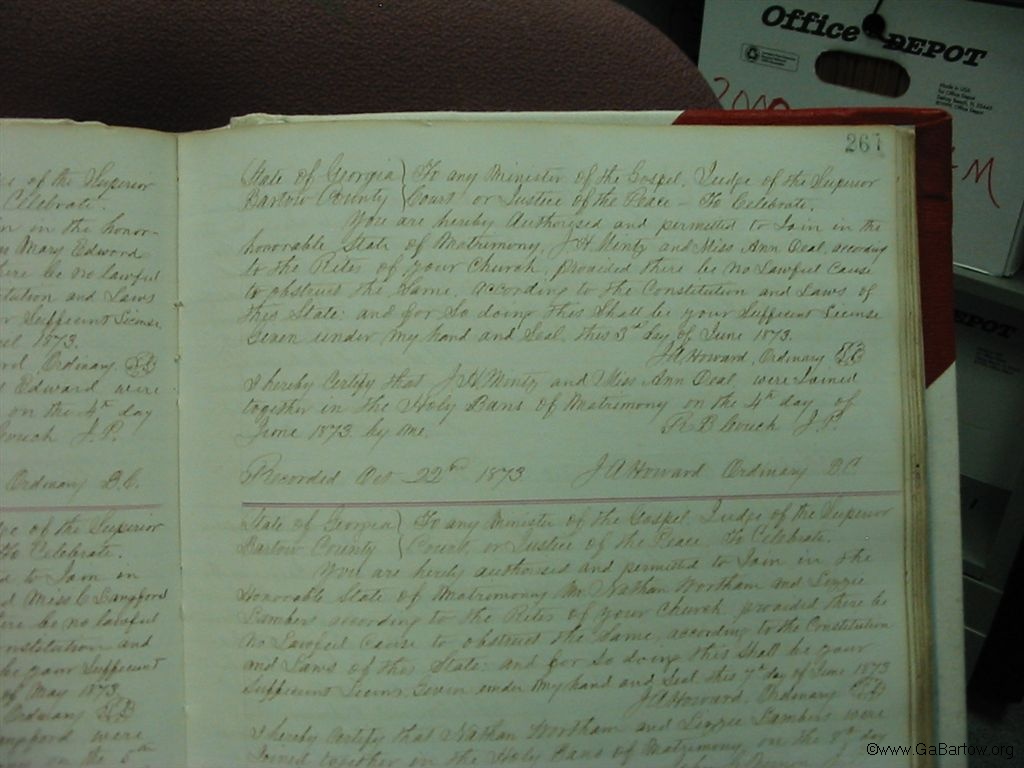 Office DEPOT
Made in USA
DEPOT
261
State of Georgia } To any Minister of the Gospel, Judge of the Superior
Bartow County } Court or Justice of the Peace – To Celebrate.
You are hereby Authorised and permitted to Join in the
honorable State of Matrimony, J H Mintz and Miss Ann Deal, according
to the Rites of your Church, provided there be no Lawful Cause
to obstruct the Same, according to the Constitution and Laws of
this State: and for So doing this Shall be your Sufficient License
Given under my hand and Seal, this 3rd day of June 1873.
J A Howard, Ordinary
I hereby Certify that J H Mintz and Miss Ann Deal, were Joined
together in the Holy Bans of Matrimony on the 4th day of
June 1873. by me. R B Couch J.P.
Recorded Oct 22nd 1873. J A Howard Ordinary B C
State of Georgia } To any Minister of the Gospel, Judge of the Superior
Bartow County } Court, or Justice of the Peace, To Celebrate.
You are hereby authorised and permitted to Join in the
Honorable State of Matrimony Mr Nathan Wortham and Lizzie
Lambers according to the Rites of your Church provided there be
No Lawful Cause to obstruct the Same, according to the Constitution
and Laws of this State: and for So doing this Shall be your
Sufficient License Given under my hand and Seal this 7th day of June 1873
J A Howard, Ordinary
I hereby Certify that Nathan Wortham and Lizzie Lambers were
Joined together in the Holy Bans of Matrimony, on the day
of the Superior
Celebrate.
in the honor-
Mary Edward
there be no lawful
and Laws
Sufficient License,
1873.
Ordinary
Edward were
on the 4th day
Couch J.P.
Ordinary B.C.
of the Superior
To Celebrate.
to Join in
Miss C Langford
there be no lawful
Constitution and
be your Sufficient
of May 1873
Ordinary
Langford were
on the 5th
©www.GaBartow.org